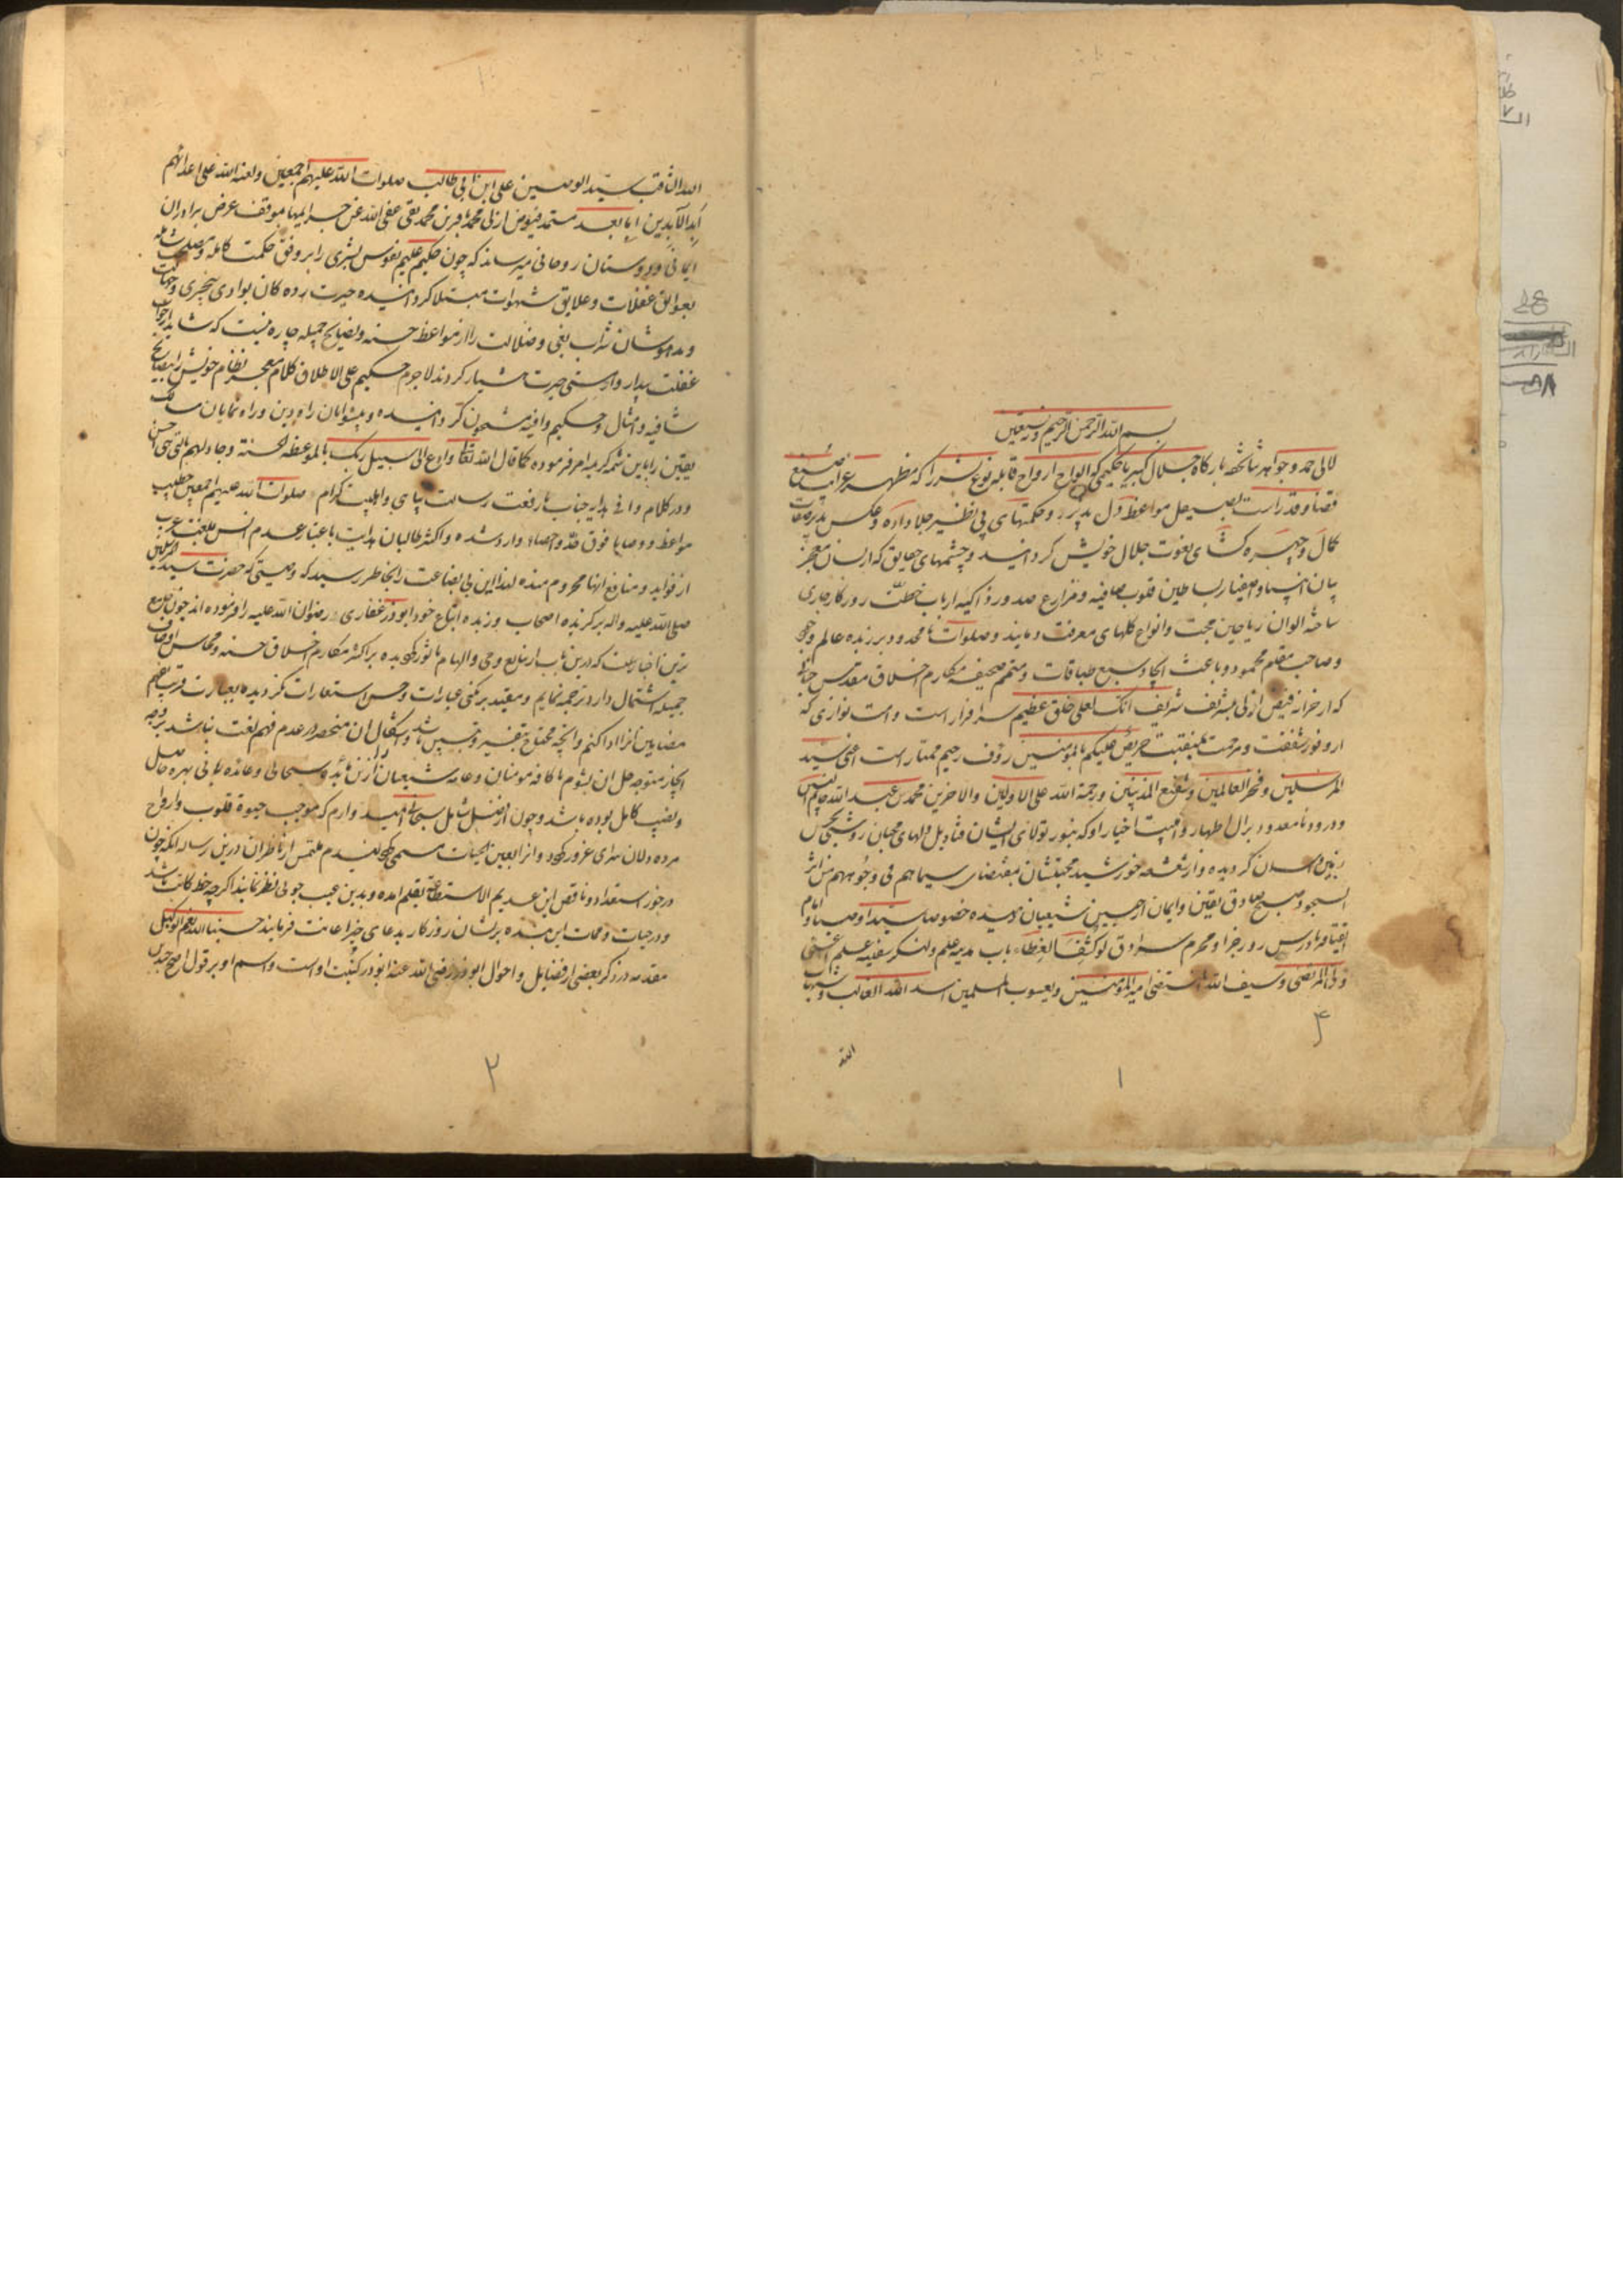 بسم الله الرحمن الرحیم وبه نستعین
لالی حمد و جواهر ثنا تحفه بارکاه جلال کبریا حکیمی که الواح ارواح قابله نوع بشر را که مظهر غرایب صنع
قضا و قدر است بصیقل مواعظ دل پذیر و حکمتهای بی نظیر جلا داده و عکس پذیر صفات
کمال و چهره کشای نعوت جلال خویش کردانید و چشمهای حقایق که از لسان معجز
بیان انبیا و اصفیا ربساطین قلوب صافیه و مزارع صدور زاکیه ارباب خطت روزکار جاری
ساخته الوان ریاحین محبت و انواع کلهای معرفت دمانید و صلوات نا محدود بر زبده عالم وجود
و صاحب مقام محمود و باعث ایجاد سبع طباقات و متمم صحیفه مکارم اخلاق مقدس جنابی
که از خزانه فیض ازلی بتشریف شریف انک لعلی خلق عظیم سرافراز است و امت نوازی که
از وفور شفقت و مرحمت بمنقبت حریص علیکم بالمؤمنین رؤف رحیم ممتاز است اعنی سید
المرسلین و فخر العالمین و شفیع المذنبین و رحمة الله علی الاولین والاخرین محمد بن عبد الله خاتم النبیین
و درود نا معدود بر ال اطهار و اهل بیت اخیار او که بنور تولای ایشان قنادیل دلهای محبان روشنی بخش
زمین و اسمان کردیده و از شعشعه خورشید محبتشان بمقتضای سیماهم فی وجوههم من اثر
السجود صبح صادق یقین و ایمان از جبین شیعیان دمیده خصوصا سید اوصیا و امام
اتقیا فریادرس روز جزا و محرم سرادق لو کشف الغطاء باب مدینه علم و لنکر سفینه حلم اعنی
ولی الله المرتضی و سیف الله المنتضی امیر المؤمنین و یعسوب المسلمین اسد الله الغالب و شهاب
الله
۴
۱
الله الثاقب سید الوصیین علی ابن ابی طالب صلوات الله علیهم اجمعین و لعنة الله علی اعدائهم
ابد الآبدین اما بعد مستمد فیوض ازلی محمد باقر بن محمد تقی عفی الله عن جرایمهما بموقف عرض برادران
ایمانی و دوستان روحانی میرساند که چون حکیم علیم نفوس بشری را بر وفق حکمت کامله و مصلحت شامله
بعوایق غفلات و علایق شهوات مبتلا کردانیده حیرت زده کان بوادی بیخبری و جهالت
و مدهوشان شراب بغی و ضلالت را از مواعظ حسنه و نصایح جمیله چاره نیست که شاید از خواب
غفلت بیدار و از مستی حیرت هشیار کردند لاجرم حکیم علی الاطلاق کلام معجز نظام خویش را بنصایح
شافیه و امثال و حکم وافیه مشحون کردانیده و پیشوایان راه دین و راه نمایان مسالک
یقین را باین شیمه کریمه امر فرموده کما قال الله تعالی وادع الی سبیل ربک بالموعظة الحسنة و جادلهم بالتی هی احسن
و در کلام وافی هدایه جناب با رفعت رسالت پناهی و اهل بیت کرام صلوات الله علیهم اجمعین خطب
مواعظ و وصایا فوق حد و احصاء وارد شده و اکثر طالبان هدایت باعتبار عدم انس بلغت عرب
از فواید و منافع انها محروم مانده لهذا این بی بضاعت را بخاطر رسید که وصیتی که حضرت سید المرسلین
صلی الله علیه واله برکزیده اصحاب و زبده اتباع خود ابوذر غفاری رضوان الله علیه را فرموده اند چون جامع
ترین اخباریست که درین باب از منابع وحی و الهام ماثور کردیده بر اکثر مکارم اخلاق حسنه و محاسن اوصاف
جمیله اشتمال دارد ترجمه نمایم و مقید برنکینی عبارات و حسن استعارات نکردیده بعبارت قریب بفهم
مضامین انرا ادا کنم و انچه محتاج بتفسیر و تبیین باشد و اشکال ان منحصر در عدم فهم لغت نباشد بر وجه
ایجاز متوجه حل ان بشوم تا کافه مومنان و عامه شیعیان را ازین مائده سبحانی و عائده ربانی بهره حاصل
و نصیب کامل بوده باشد و چون از فضل شامل سبحانی امید وارم که موجب حیوة قلوب و ارواح
مرده دلان سرای غرور کردد و انرا بعین الحیات مسمی کردانیدم ملتمس از ناظران درین رساله انکه چون
درخور استعداد ناقص این عدیم الاستطاعة بقلم امده و بدین عیب جوئی نظر نمایند اکر چه خط کاتب باشد
و در حیات و ممات این شده پرشان روزکار بدعای خیر اعانت فرمایند حسبنا الله و نعم الوکیل
مقدمه در ذکر بعضی از فضایل و احوال ابوذر رضی الله عنه ابوذر کنیت او است و اسم او بر قول اصح جندب
۲